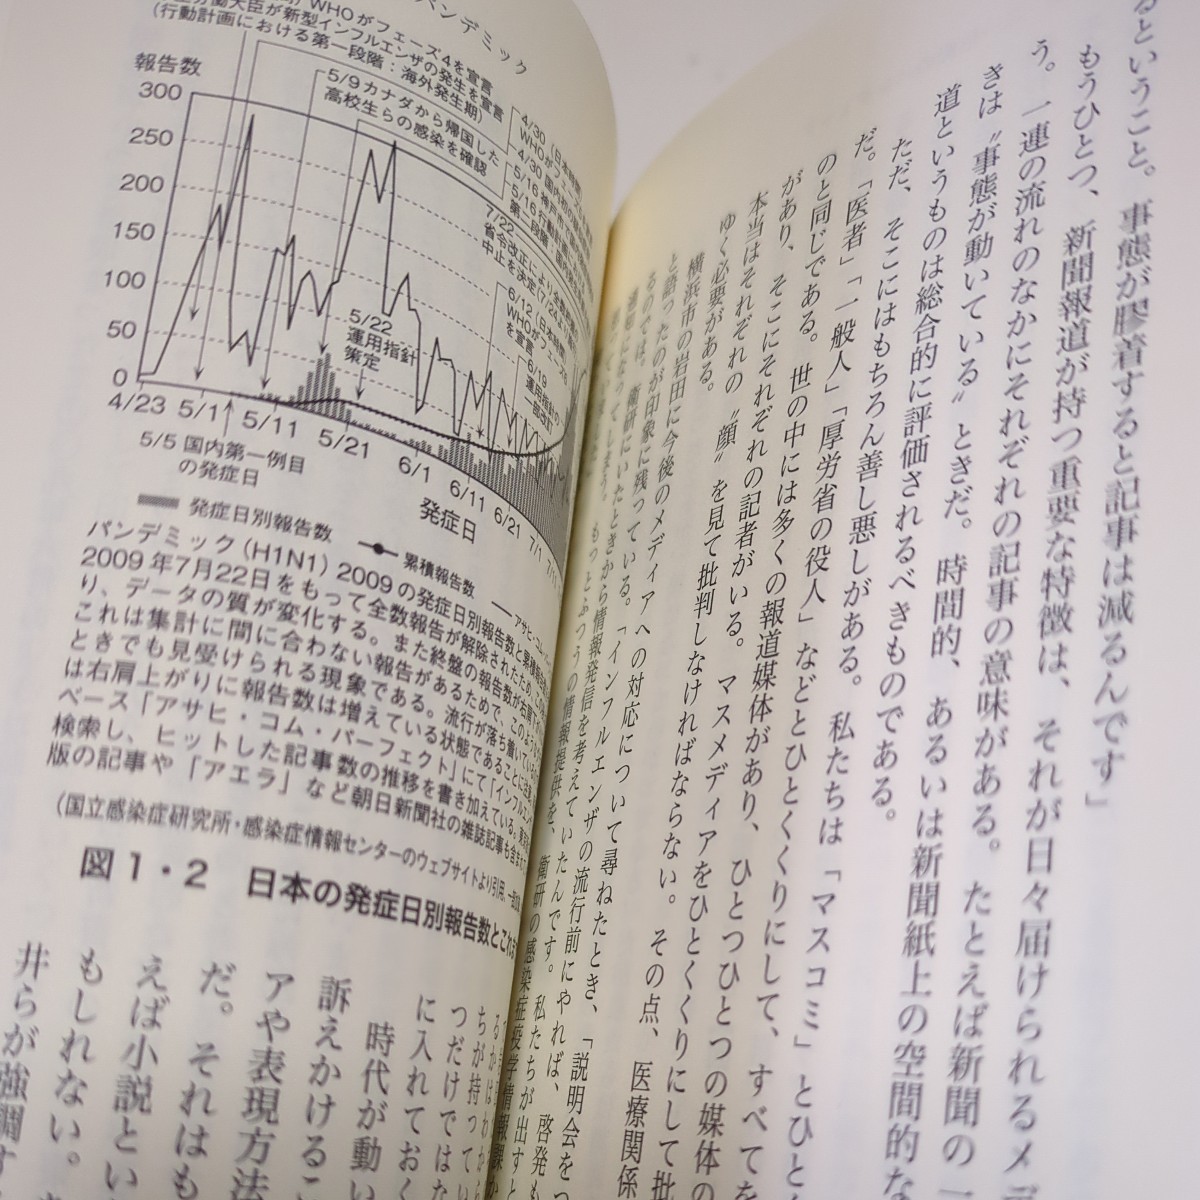 ということ。事態が膠着すると記事は減るんです」
もうひとつ、新聞報道が持つ重要な特徴は、それが日々届けられるメデ
う。一連の流れのなかにそれぞれの記事の意味がある。たとえば新聞の一
きは“事態が動いている”ときだ。時間的、あるいは新聞紙上の空間的な
道というものは総合的に評価されるべきものである。
ただ、そこにはもちろん善し悪しがある。私たちは「マスコミ」とひと
だ。「医者」「一般人」「厚労省の役人」などとひとくくりにして、すべてを
のと同じである。世の中には多くの報道媒体があり、ひとつひとつの媒体の
があり、そこにそれぞれの記者がいる。マスメディアをひとくくりにして批
本当はそれぞれの“顔”を見て批判しなければならない。その点、医療関係
ゆく必要がある。
横浜市の岩田に今後のメディアへの対応について尋ねたとき、「説明会をつ
と語ったのが印象に残っている。「インフルエンザの流行前にやれば、啓発も
るのでは。衛研にいたときから情報発信を考えていたんです。私たちが出すと
もっとふつうの情報提供を、衛研の感染症疫学情報課か
パンデミック
WHOがフェーズ4を宣言
働大臣が新型インフルエンザの発生を宣言
(行動計画における第一段階：海外発生期)
5/9カナダから帰国した
高校生らの感染を確認
報告数
300
250
200
150
100
50
0
4/30 (日本時間)
WHOがフェーズ
4/30 国内初の
5/16 神戸市で
5/16 行動計画
第二段階：国内
7/22
省令改正により全数
中止を決定(7/24
6/12 (日本時間)
WHOがフェーズ6
を宣言
6/19
運用指針の
一部改訂
5/22
運用指針
策定
4/23 5/1 5/11 5/21 6/1 6/11 6/21 7/1 7/11
5/5 国内第一例目
の発症日
発症日
発症日別報告数 累積報告数 アサヒ・コム
パンデミック(H1N1) 2009の発症日別報告数と累積報告
2009年7月22日をもって全数報告が解除されたため、この
り、データの質が変化する。また終盤の報告数が右肩下がり
これは集計に間に合わない報告があるためで、このような
ときでも見受けられる現象である。流行が落ち着いてい
は右肩上がりに報告数は増えている状態であることに注意
ベース「アサヒ・コム・パーフェクト」にて「インフルエン
検索し、ヒットした記事数の推移を書き加えている。東京
版の記事や「アエラ」など朝日新聞社の雑誌記事も含まず
(国立感染症研究所・感染症情報センターのウェブサイトより引用、一部改
図1・2 日本の発症日別報告数とこれま
ちが持ってい
つだけではな
に入れておく
時代が動い
訴えかけるこ
アや表現方法
だ。それはも
えば小説とい
もしれない。
井らが強調す